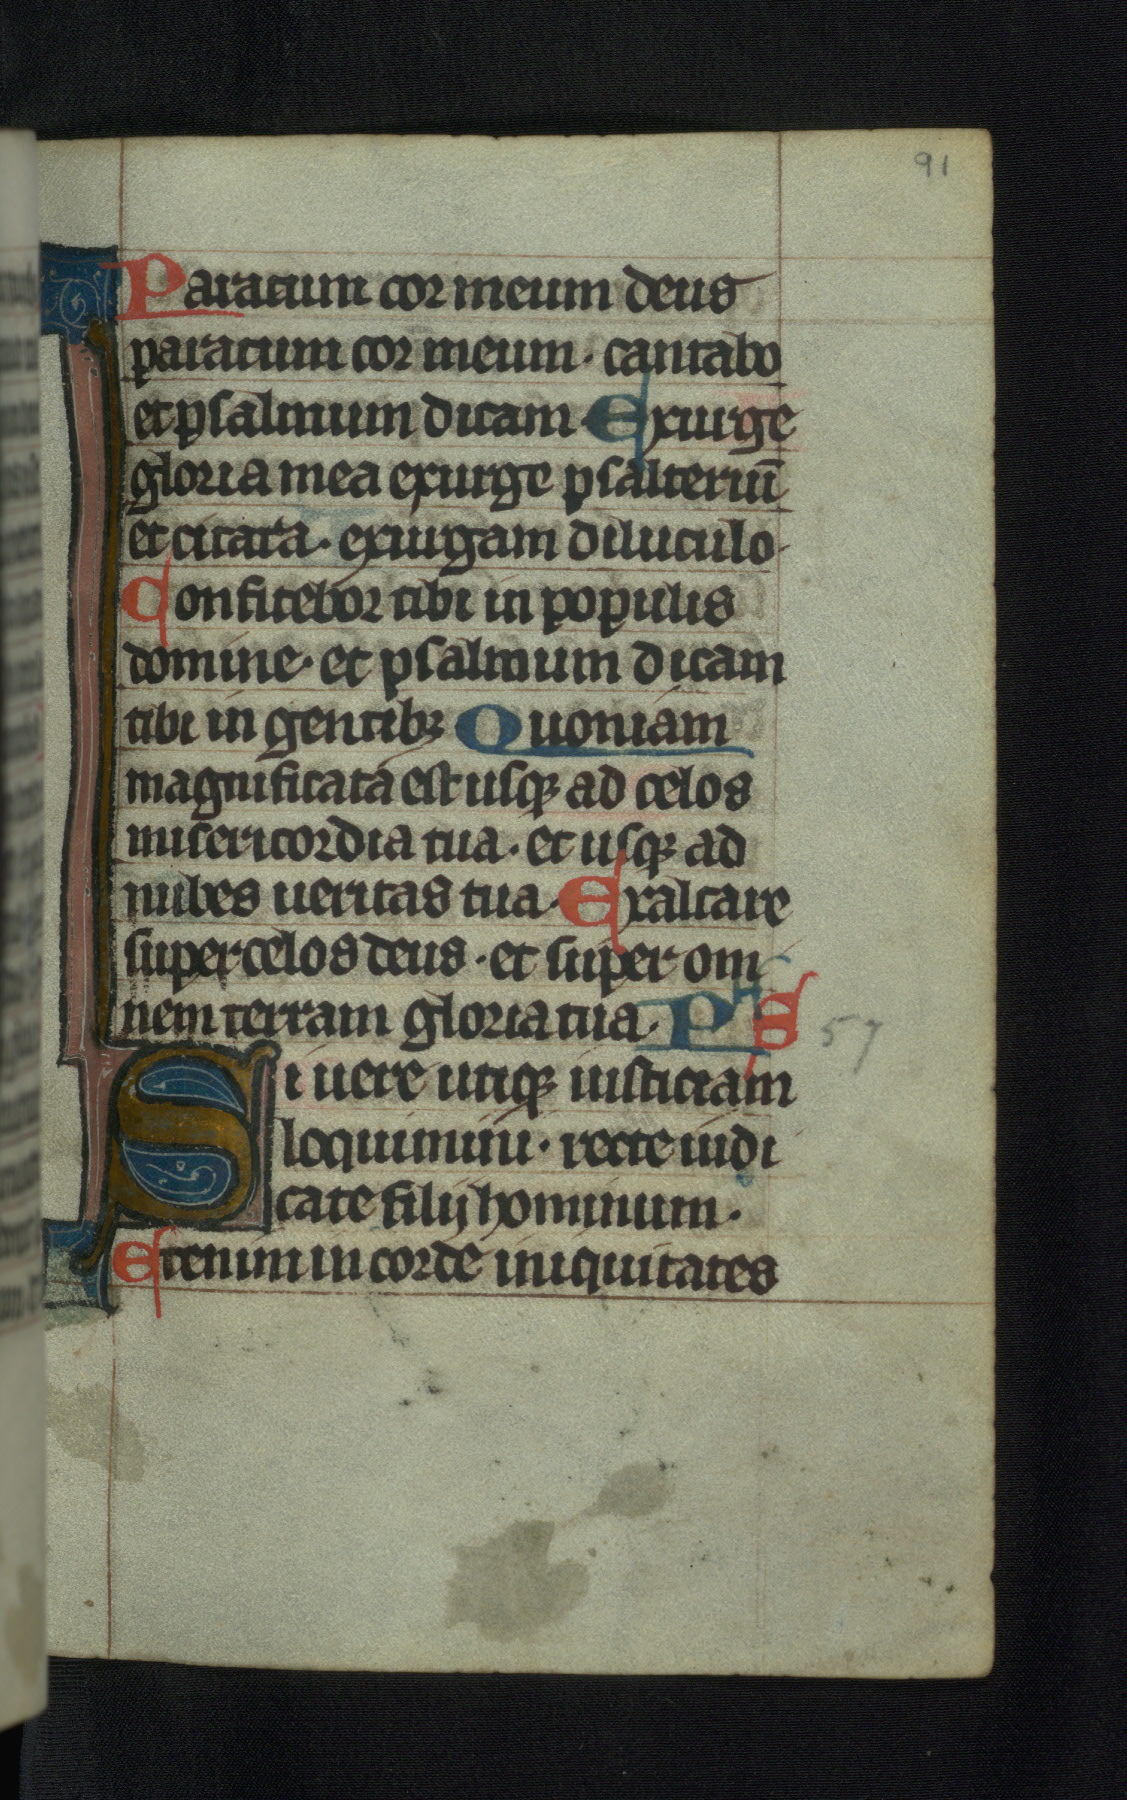 91
Paratum cor meum deus
paratum cor meum · cantabo
et psalmum dicam Exurge
gloria mea exurge psalteriū
et citara · exurgam diluculo ·
Confitebor tibi in populis
domine · et psalmum dicam
tibi in gentibꝫ Quoniam
magnificata est usqꝫ ad celos
misericordia tua · et usqꝫ ad
nubes ueritas tua · Exaltare
super celos deus · et super om
nem terram gloria tua · PS
57
Si uere utiqꝫ iusticiam
loquimini · recte iudi
cate filij hominum ·
Etenim in corde iniquitates